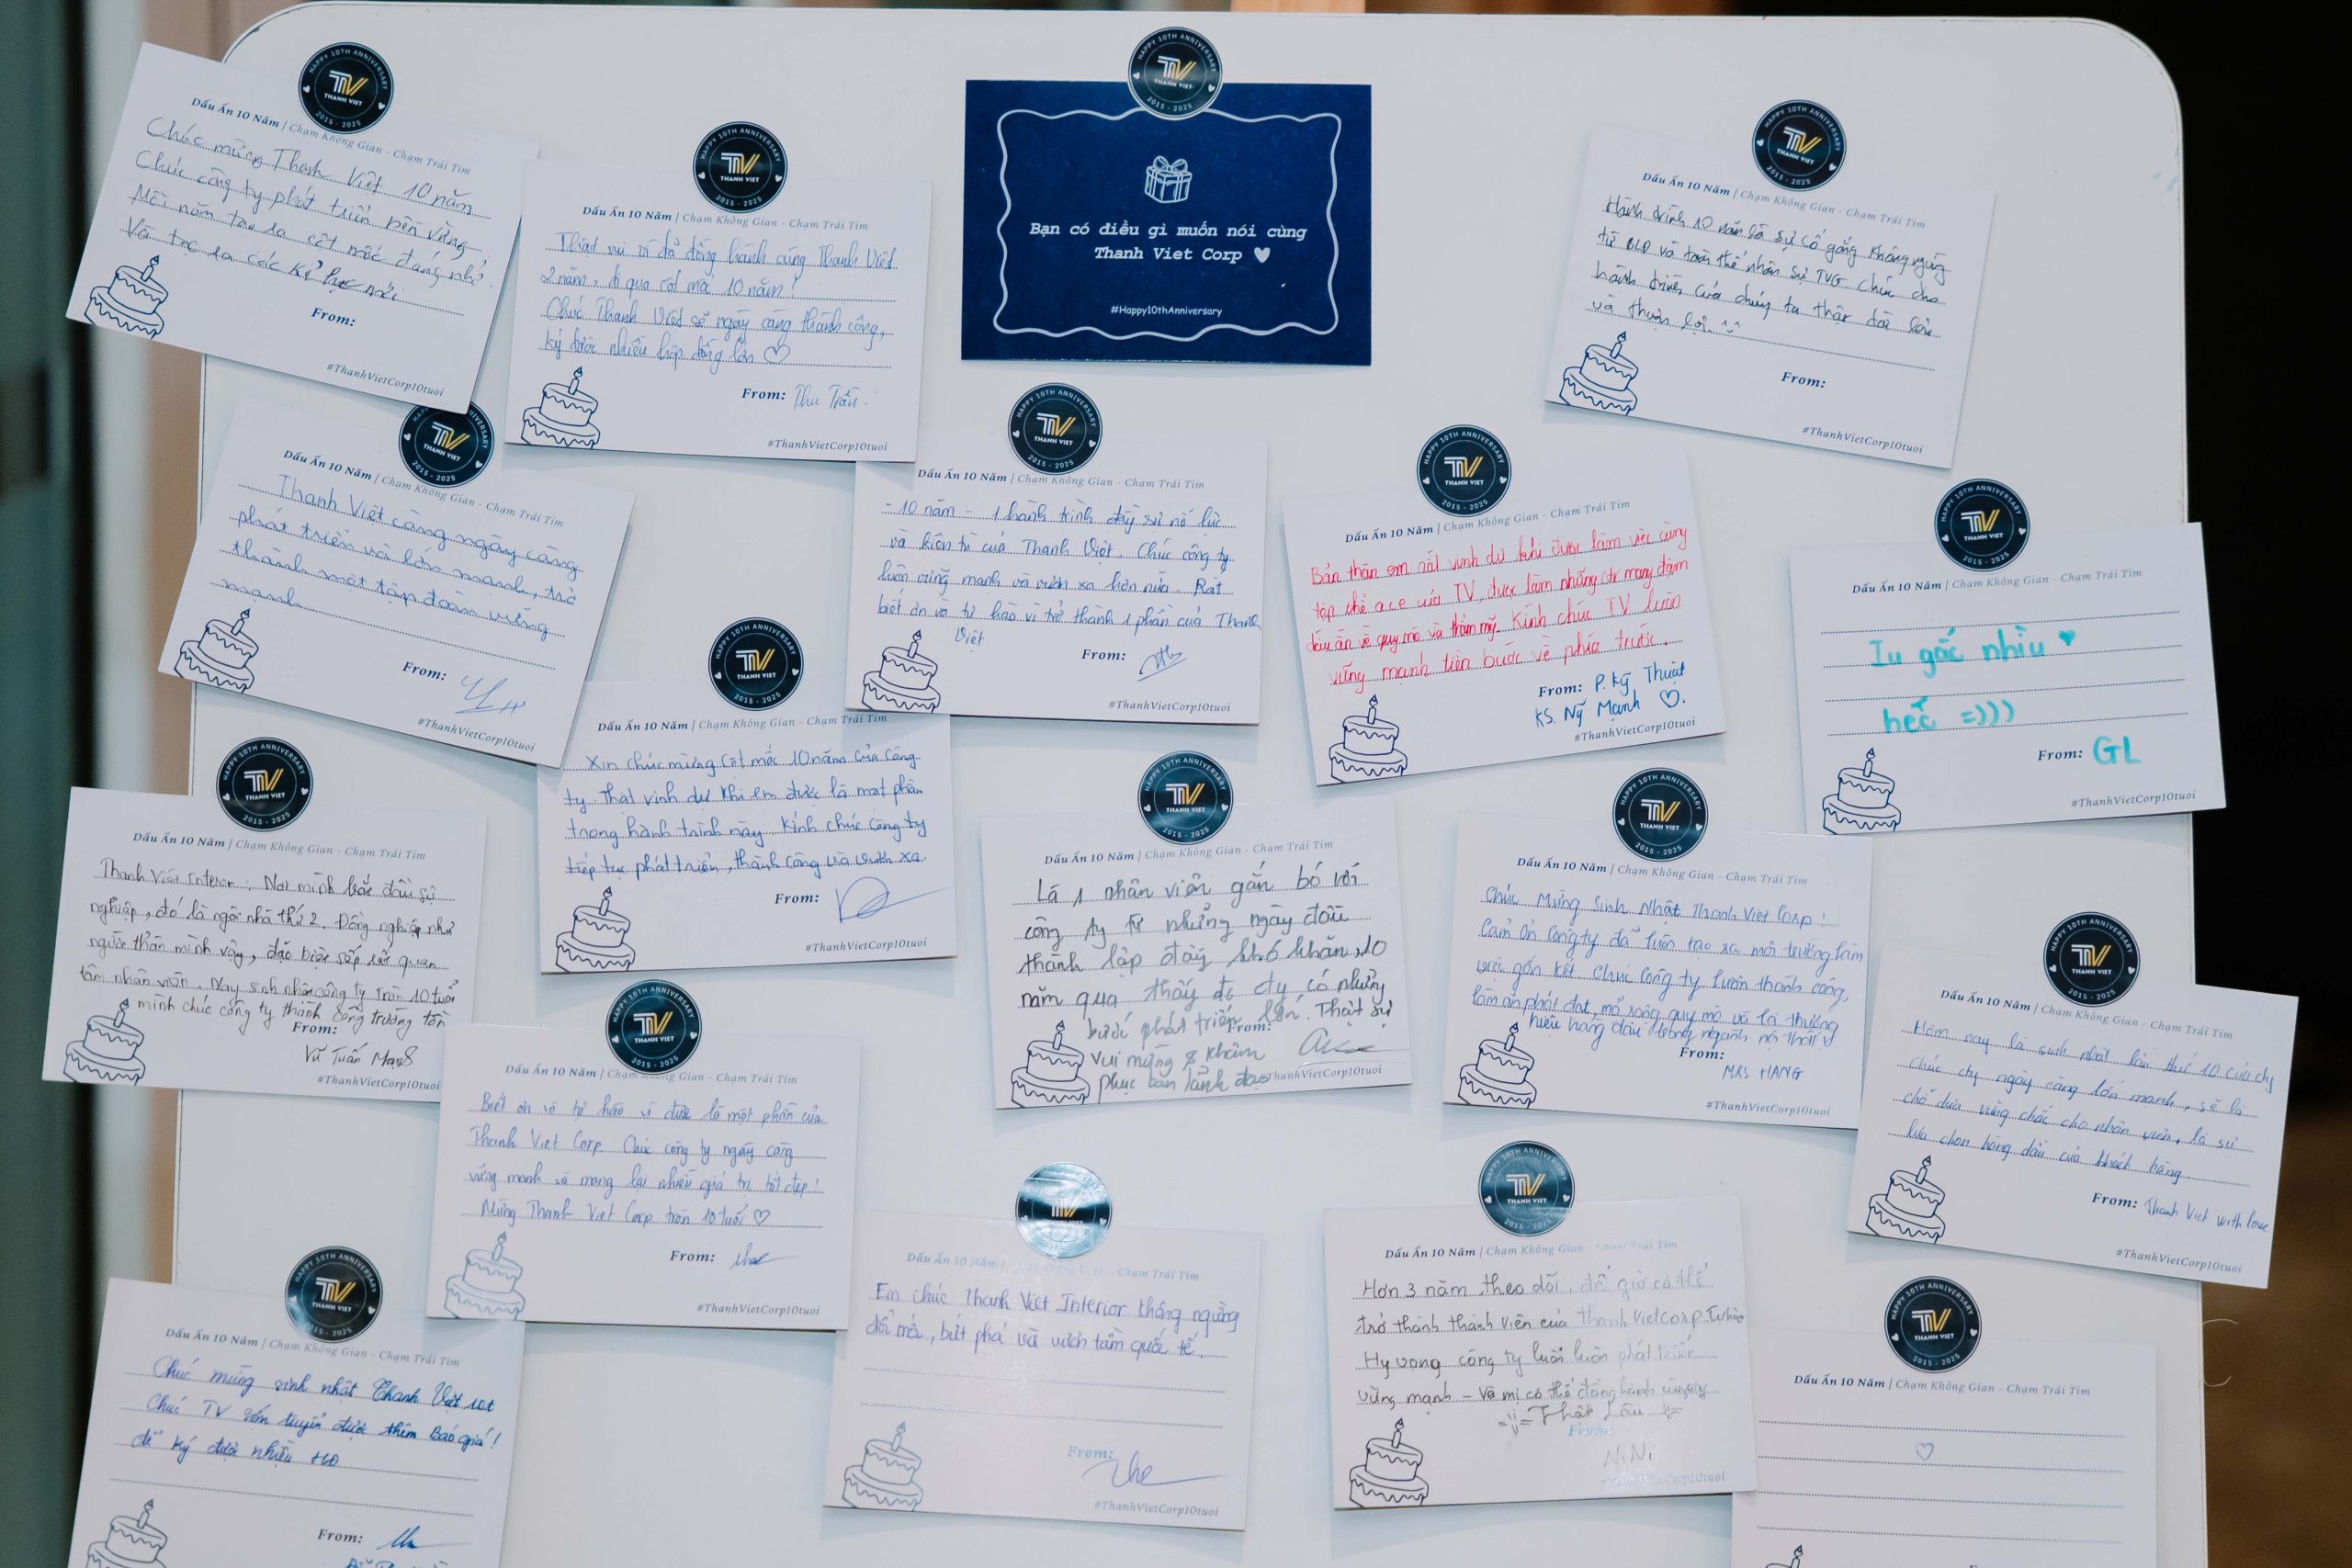 HAPPY 10TH ANNIVERSARY
TV
THANH VIET
2015 - 2025
Dấu Ấn 10 Năm | Chạm Không Gian - Chạm Trái Tim
Chúc mừng Thanh Việt 10 năm
Chúc công ty phát triển bền vững
Mỗi năm tạo ra cột mốc đáng nhớ
Và tạo ra các kỉ lục mới
From:
#ThanhVietCorp10tuoi
HAPPY 10TH ANNIVERSARY
TV
THANH VIET
2015 - 2025
Dấu Ấn 10 Năm | Chạm Không Gian - Chạm Trái Tim
Thật vui vì đã đồng hành cùng Thanh Việt
2 năm, đi qua cột mốc 10 năm!
Chúc Thanh Việt sẽ ngày càng thành công,
ký được nhiều hợp đồng lớn ♡
From: Thu Trần
#ThanhVietCorp10tuoi
HAPPY 10TH ANNIVERSARY
TV
THANH VIET
2015 - 2025
Bạn có điều gì muốn nói cùng
Thanh Viet Corp ♥
#Happy10thAnniversary
HAPPY 10TH ANNIVERSARY
TV
THANH VIET
2015 - 2025
Dấu Ấn 10 Năm | Chạm Không Gian - Chạm Trái Tim
Hành trình 10 năm là sự cố gắng không ngừng
từ BLĐ và toàn thể nhân sự TVG chúc cho
hành trình của chúng ta thật dài lâu
và thuận lợi
From:
#ThanhVietCorp10tuoi
TV
THANH VIET
2015 - 2025
Dấu Ấn 10 Năm | Chạm Không Gian - Chạm Trái Tim
Thanh Việt càng ngày càng
phát triển và lớn mạnh, trở
thành một tập đoàn vững
mạnh
From:
#ThanhVietCorp10tuoi
HAPPY 10TH ANNIVERSARY
TV
THANH VIET
2015 - 2025
Dấu Ấn 10 Năm | Chạm Không Gian - Chạm Trái Tim
- 10 năm - 1 hành trình đầy sự nỗ lực
và kiên trì của Thanh Việt. Chúc công ty
luôn vững mạnh và vươn xa hơn nữa. Rất
biết ơn và tự hào vì trở thành 1 phần của Thanh
Việt
From:
#ThanhVietCorp10tuoi
HAPPY 10TH ANNIVERSARY
TV
THANH VIET
2015 - 2025
Dấu Ấn 10 Năm | Chạm Không Gian - Chạm Trái Tim
Bản thân em rất vinh dự khi được làm việc cùng
tập thể ace của TV, được làm những ctr mang đậm
dấu ấn về quy mô và thẩm mỹ. Kính chúc TV luôn
vững mạnh tiến bước về phía trước.
From: P. Kỹ Thuật
KS. Mạnh ♡.
#ThanhVietCorp10tuoi
HAPPY 10TH ANNIVERSARY
TV
THANH VIET
2015 - 2025
Dấu Ấn 10 Năm | Chạm Không Gian - Chạm Trái Tim
Iu gắc nhìu ♥
hếc =)))
From: GL
#ThanhVietCorp10tuoi
HAPPY 10TH ANNIVERSARY
TV
THANH VIET
2015 - 2025
Dấu Ấn 10 Năm | Chạm Không Gian - Chạm Trái Tim
Xin chúc mừng cột mốc 10 năm của công
ty. Thật vinh dự khi em được là một phần
trong hành trình này. Kính chúc công ty
tiếp tục phát triển, thành công và vươn xa.
From:
#ThanhVietCorp10tuoi
HAPPY 10TH ANNIVERSARY
TV
THANH VIET
2015 - 2025
Dấu Ấn 10 Năm | Chạm Không Gian - Chạm Trái Tim
Thanh Việt Interior: Nơi mình bắt đầu sự
nghiệp, đó là ngôi nhà thứ 2. Đồng nghiệp như
người thân mình vậy, đặc biệt sếp rất quan
tâm nhân viên. Nay sinh nhật công ty tròn 10 tuổi
mình chúc công ty thành công trường tồn
From:
Vũ Tuấn Mạnh
#ThanhVietCorp10tuoi
HAPPY 10TH ANNIVERSARY
TV
THANH VIET
2015 - 2025
Dấu Ấn 10 Năm | Chạm Không Gian - Chạm Trái Tim
Là 1 nhân viên gắn bó với
công ty từ những ngày đầu
thành lập đầy khó khăn, 10
năm qua thấy đc cty có những
bước phát triển lớn. Thật sự
From:
vui mừng & khâm
phục ban lãnh đạo
#ThanhVietCorp10tuoi
HAPPY 10TH ANNIVERSARY
TV
THANH VIET
2015 - 2025
Dấu Ấn 10 Năm | Chạm Không Gian - Chạm Trái Tim
Chúc Mừng Sinh Nhật Thanh Viet Corp!
Cảm ơn Công ty đã luôn tạo ra môi trường làm
việc gắn kết. Chúc Công ty luôn thành công,
làm ăn phát đạt, mở rộng quy mô và là thương
hiệu hàng đầu trong ngành nội thất
From:
MRS HANG
#ThanhVietCorp10tuoi
HAPPY 10TH ANNIVERSARY
TV
THANH VIET
2015 - 2025
Dấu Ấn 10 Năm | Chạm Không Gian - Chạm Trái Tim
Hôm nay là sinh nhật lần thứ 10 của cty
chúc cty ngày càng lớn mạnh, sẽ là
chỗ dựa vững chắc cho nhân viên, là sự
lựa chọn hàng đầu của khách hàng
From: Thanh Viet with love
#ThanhVietCorp10tuoi
HAPPY 10TH ANNIVERSARY
TV
THANH VIET
Dấu Ấn 10 Năm | Chạm Không Gian - Chạm Trái Tim
Biết ơn và tự hào vì được là một phần của
Thanh Viet Corp. Chúc công ty ngày càng
vững mạnh và mang lại nhiều giá trị tốt đẹp!
Mừng Thanh Viet Corp tròn 10 tuổi ♡
From:
#ThanhVietCorp10tuoi
Dấu Ấn 10 Năm | Chạm Trái Tim
Em chúc Thanh Viet Interior không ngừng
đổi mới, bứt phá và vươn tầm quốc tế.
From:
#ThanhVietCorp10tuoi
HAPPY 10TH ANNIVERSARY
TV
THANH VIET
2015 - 2025
Dấu Ấn 10 Năm | Chạm Không Gian - Chạm Trái Tim
Hơn 3 năm theo dõi, để giờ có thể
trở thành thành viên của Thanh Vietcorp. Tự hào
Hy vọng công ty luôn luôn phát triển
vững mạnh - Và mị có thể đồng hành cùng cty
Thật Lâu
From:
NiNi
#ThanhVietCorp10tuoi
HAPPY 10TH ANNIVERSARY
TV
THANH VIET
2015 - 2025
Dấu Ấn 10 Năm | Chạm Không Gian - Chạm Trái Tim
Chúc mừng sinh nhật Thanh Việt 10t
Chúc TV sớm tuyển được thêm Báo giá!
để ký được nhiều HĐ
From:
HAPPY 10TH ANNIVERSARY
TV
THANH VIET
2015 - 2025
Dấu Ấn 10 Năm | Chạm Không Gian - Chạm Trái Tim
♡